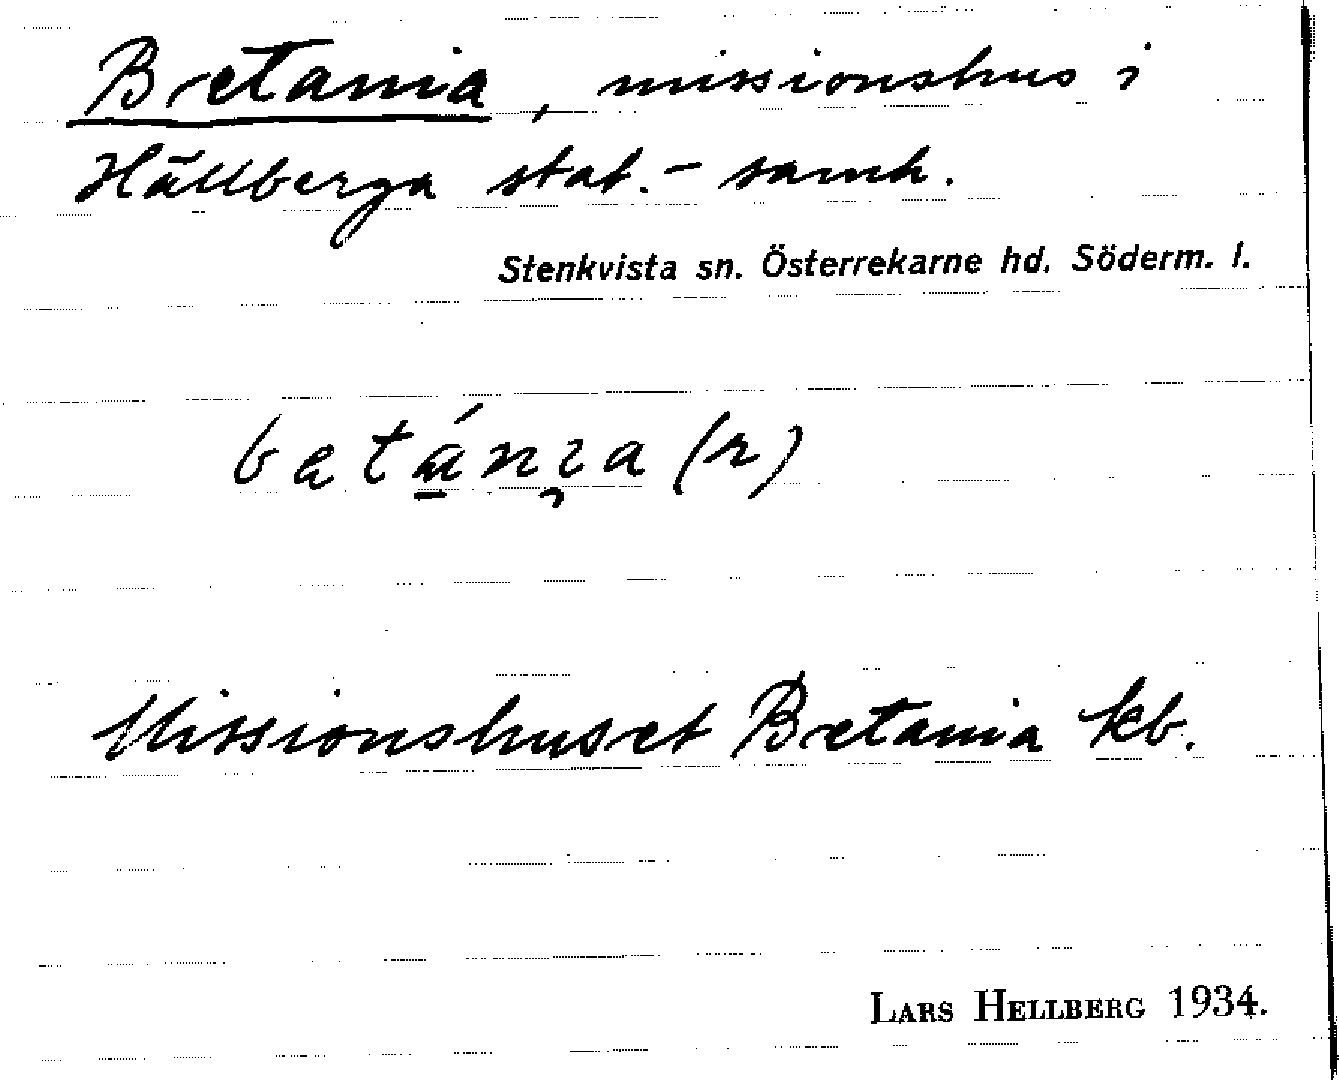 Betania, missionshus i
Hällberga stat.-samh.
Stenkvista sn. Österrekarne hd. Söderm. l.
Missionshuset Betania kb.
LARS HELLBERG 1934.